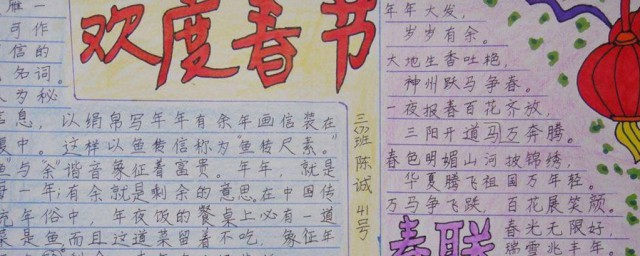 雁一
可作
信的
名词。
人为秘
信息，以绢帛写年年有余年画信装在
腹中。这样以鱼传信称为"鱼传尺素。"
鱼"与"余"谐音象征着富贵。年年，就是
每一年；有余就是剩余的意思，在中国传
统年俗中，年夜饭的餐桌上必有一道
菜是鱼，而且这道菜留着不吃，象征年
欢度春节
三(7)班 陈诚 41号
年年大发，
岁岁有余。
大地生香吐艳，
神州跃马争春。
一夜报春百花齐放，
三阳开道马万奔腾。
春色明媚山河披锦绣，
华夏腾飞祖国万年轻。
万马争飞跃，百花展笑颜。
春联
春光无限好，
瑞雪兆丰年。